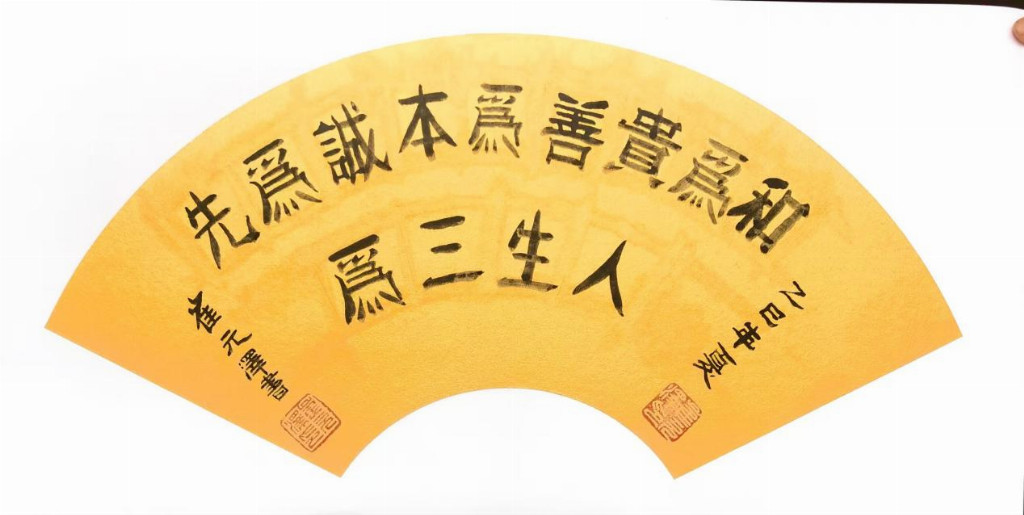 和爲貴善爲本誠爲先
人生三爲
乙巳年夏
崔元澤書